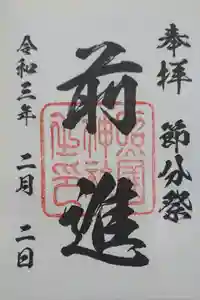 奉拝 節分祭
前進
令和三年 二月 二日